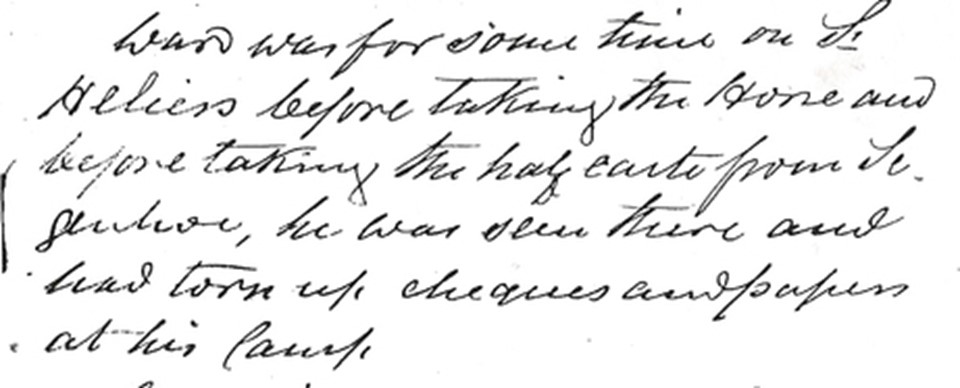 Ward was for some time on St
Heliers before taking the Horse and
before taking the half caste from Se-
genhoe, he was seen there and
had torn up cheques and papers
at his Camp